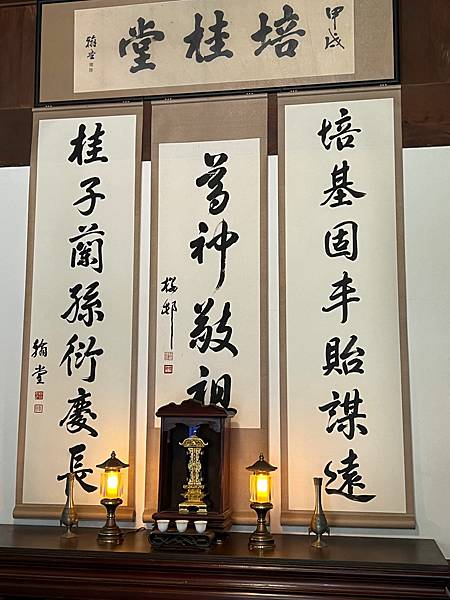 甲戌
培桂堂
翰堂
培基固本貽謀遠
尊神敬祖
桂子蘭孫衍慶長
翰堂